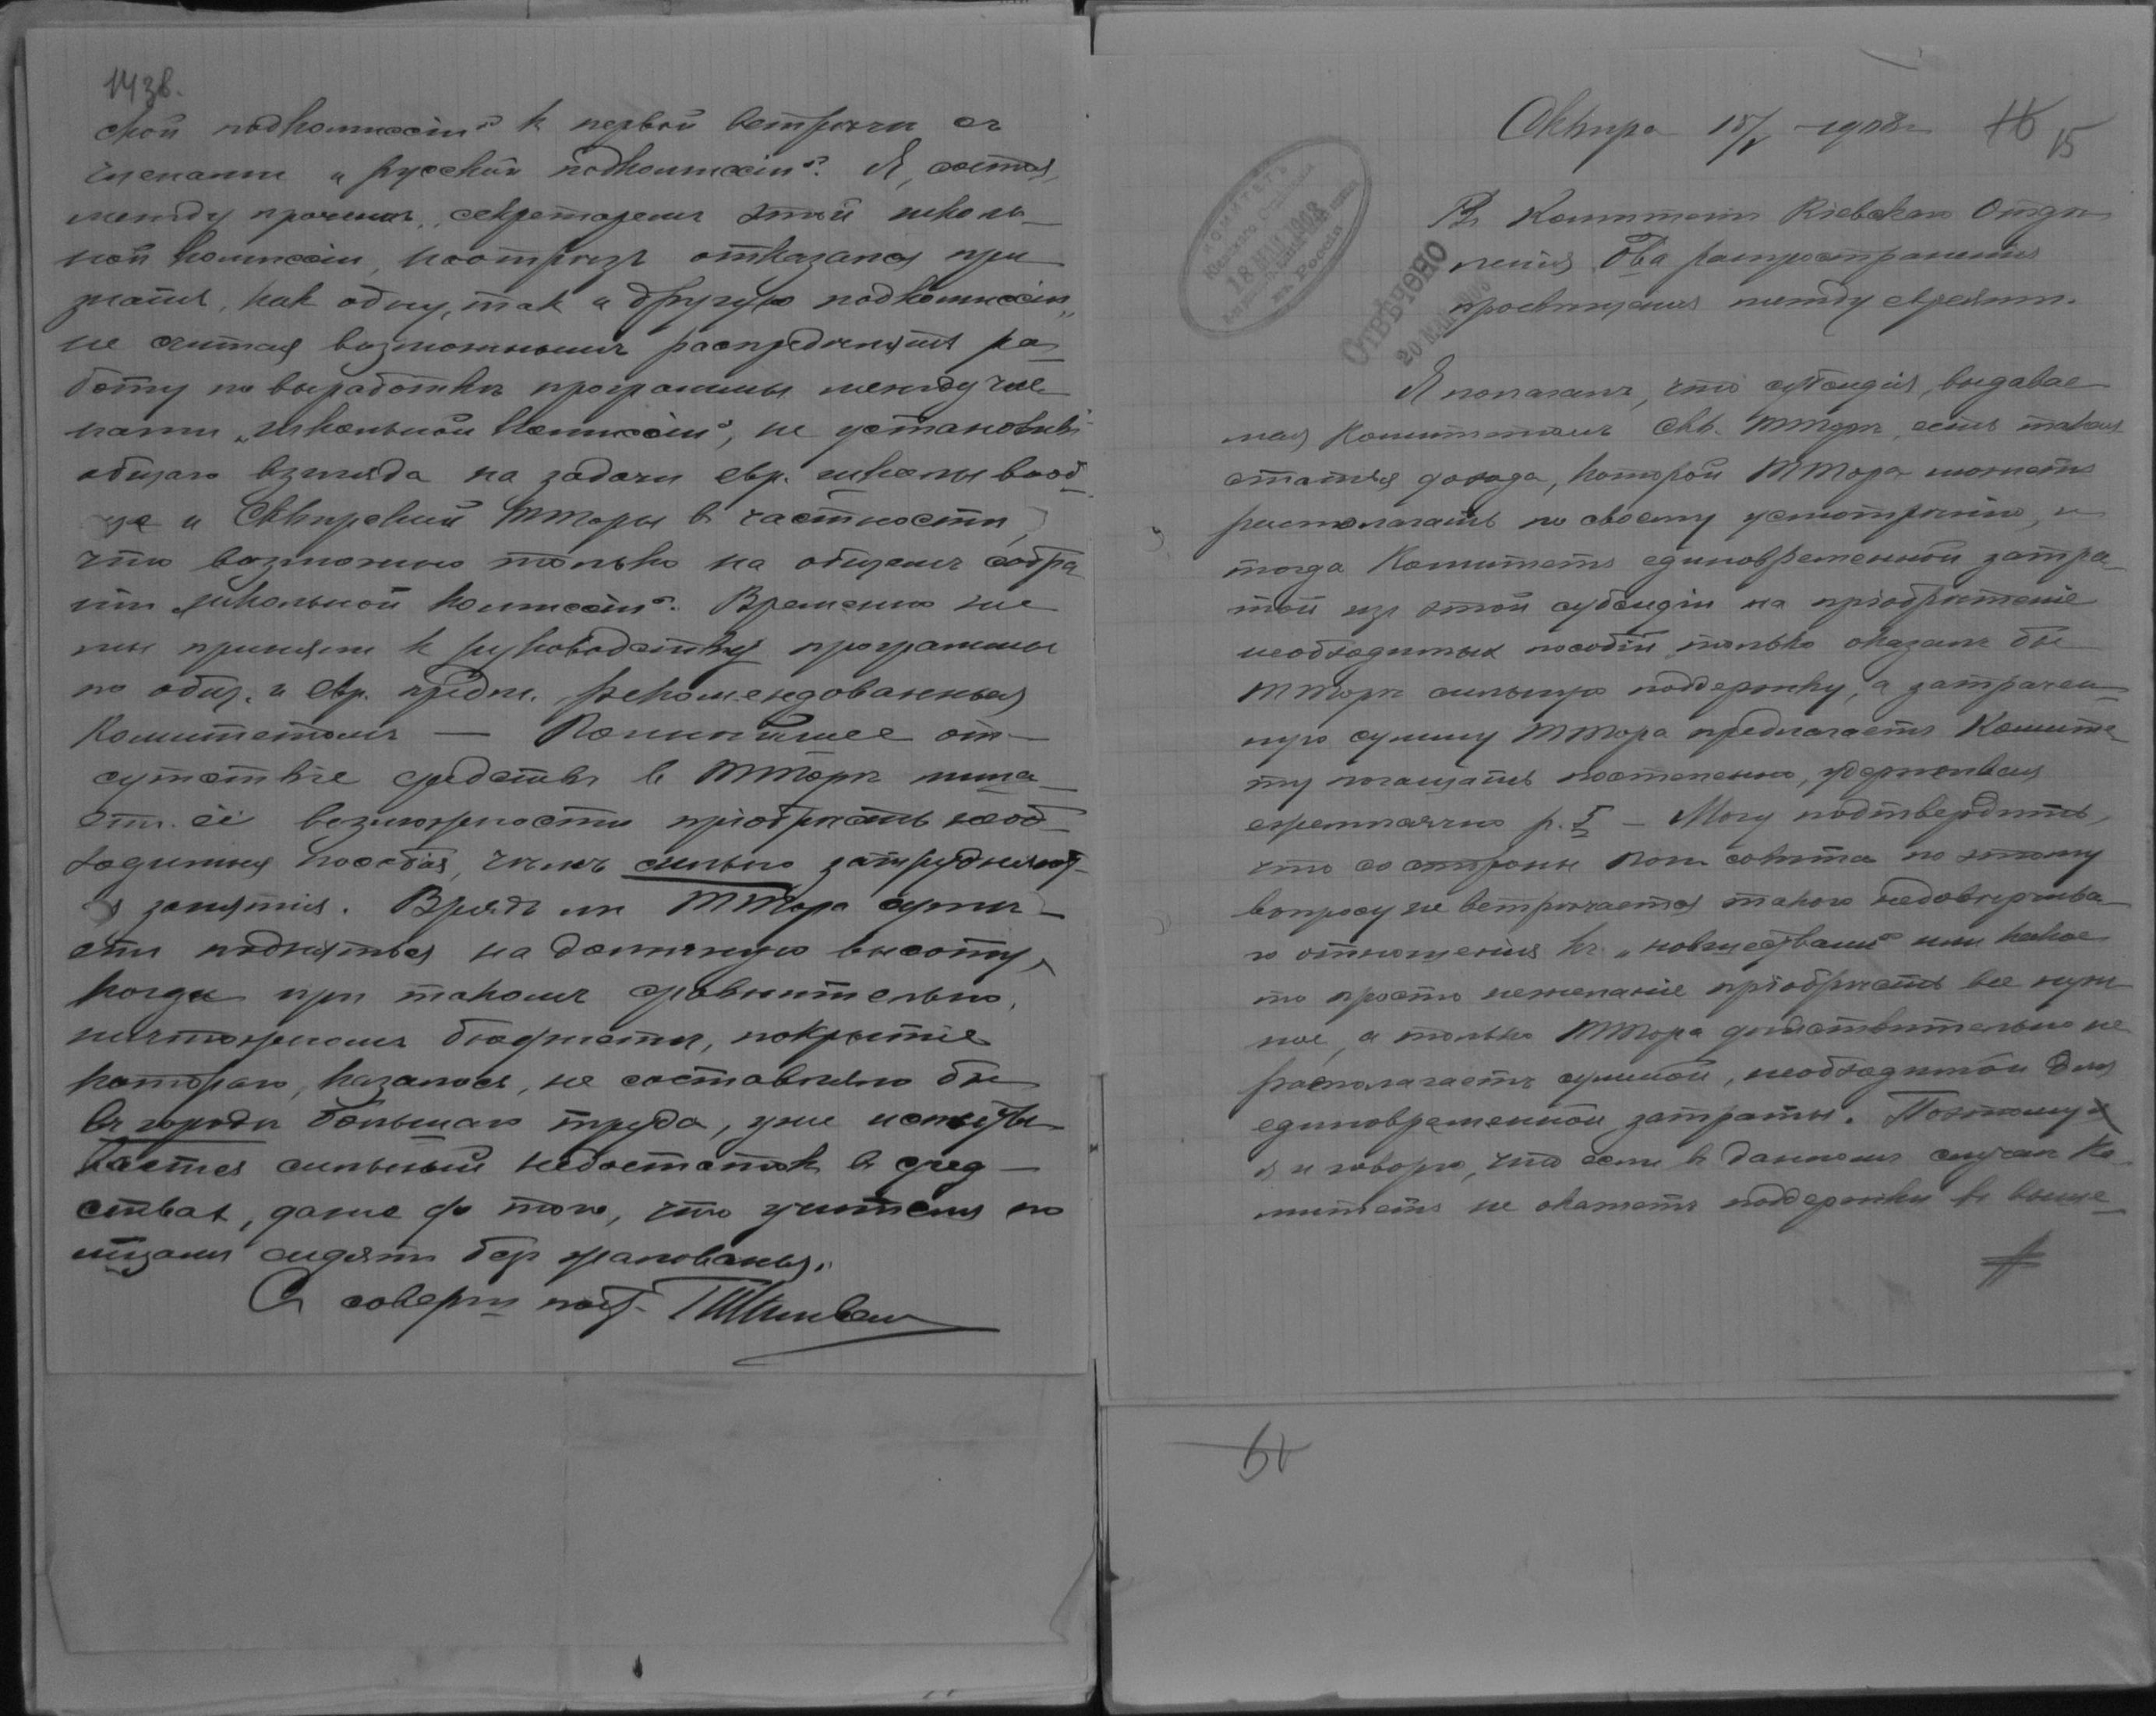 14 зв.
ской подкоммиссіи" к первой встрѣчи съ
членами "русской подкоммиссіи". Я, состоя,
между прочимъ, секретаремъ этой школь-
ной коммиссіи, наотрѣзъ отказался при
знать, как одну, так и другую подкоммиссіи,
не считая возможнымъ распредѣлять ра-
боту по выработкѣ программы между чле-
нами "школьной коммиссіи", не установивъ
общаго взгляда на задачи евр. школы вооб-
ще и Сквирской ТТоры в частности,
что возможно только на общемъ собра
ніи "школьной коммиссіи". Временно же
мы приняли к руководству программы
по общ. и евр. предм. рекомендованныя
Комитетомъ — Полнѣйшее от-
сутствіе средствъ в ТТорѣ лиша-
етъ её возможности пріобрѣсть необ-
ходимыя пособія, чѣмъ сильно затрудняют-
ся занятія. Врядъ ли ТТора сумѣ-
етъ подняться на должную высоту,
когда при такомъ сравнительно,
ничтожномъ бюджетѣ, покрытіе
котораго, казалось, не составляло бы
въ городѣ большаго труда, уже испыты-
вается сильный недостаток в сред-
ствах, даже до того, что учителя по
мѣсяцам сидятъ без жалованья.
Съ соверш. почт.
Сквира 18/V -1908 г.
16 15
КОМИТЕТЪ
18 МАЯ 1908
въ Россіи
ОТВѢЧЕНО
20 МАЯ 1908
Въ Комитетъ Кіевскаго Отдѣ
ленія О-ва распространенія
просвѣщенія между евреями.
Я полагалъ, что субсидія, выдавае
мая Комитетомъ Скв. ТТорѣ, есть такая
статья дохода, которой ТТора можетъ
располагать по своему усмотрѣнію, и
тогда Комитетъ единовременной затра-
той изъ этой субсидіи на пріобрѣтеніе
необходимых пособій только оказалъ бы
ТТорѣ сильную поддержку, а затрачен-
ную сумму ТТора предлагаетъ Комите-
ту погащать постепенно, удерживая
ежемѣсячно р. 5 — Могу подтвердить,
что со стороны Поп. совѣта по этому
вопросу не встрѣчается такого недовѣрчива-
го отношенія къ "новшествамъ" или какое
то просто нежеланіе пріобрѣсть все нуж
ное, а только ТТора дѣйствительно не
располагаетъ суммой, необходимой для
единовременной затраты. Поэтому
я и говорю, что если в данномъ случаѣ Ко-
митетъ не окажетъ поддержки въ выше-